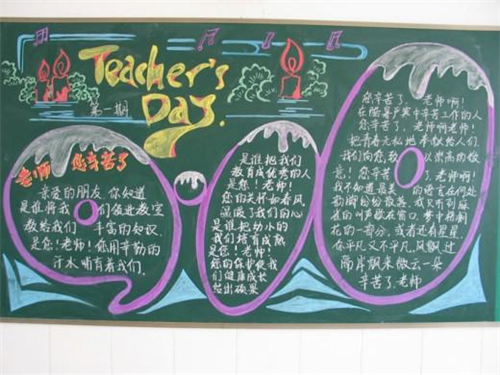 Teacher's
Day.
第一期
老师 您辛苦了
亲爱的朋友,你知道
是谁将我们领进教室
教给我们丰富的知识
是您!老师!您用辛勤的
汗水哺育着我们.
是谁把我们
教育成优秀的人
是您!老师!
您的关怀如春风
温暖了我们的心
是谁把幼小的
我们培育成熟
是您!老师!
您的保护使我
们健康成长
结出硕果
您辛苦了,老师啊!
在隆暑严寒中辛苦工作的人
您辛苦了,老师啊老师!
把青春无私地奉献给人们.
我们向您致以崇高的敬
意!您辛苦了,老师啊!我
不知道最美的语言在何处
勤的声影在窗口.梦中格桐
花的一部分,或者还有星星.
在平凡又不平凡,风飘过
两岸飘来微云一朵
辛苦了,老师